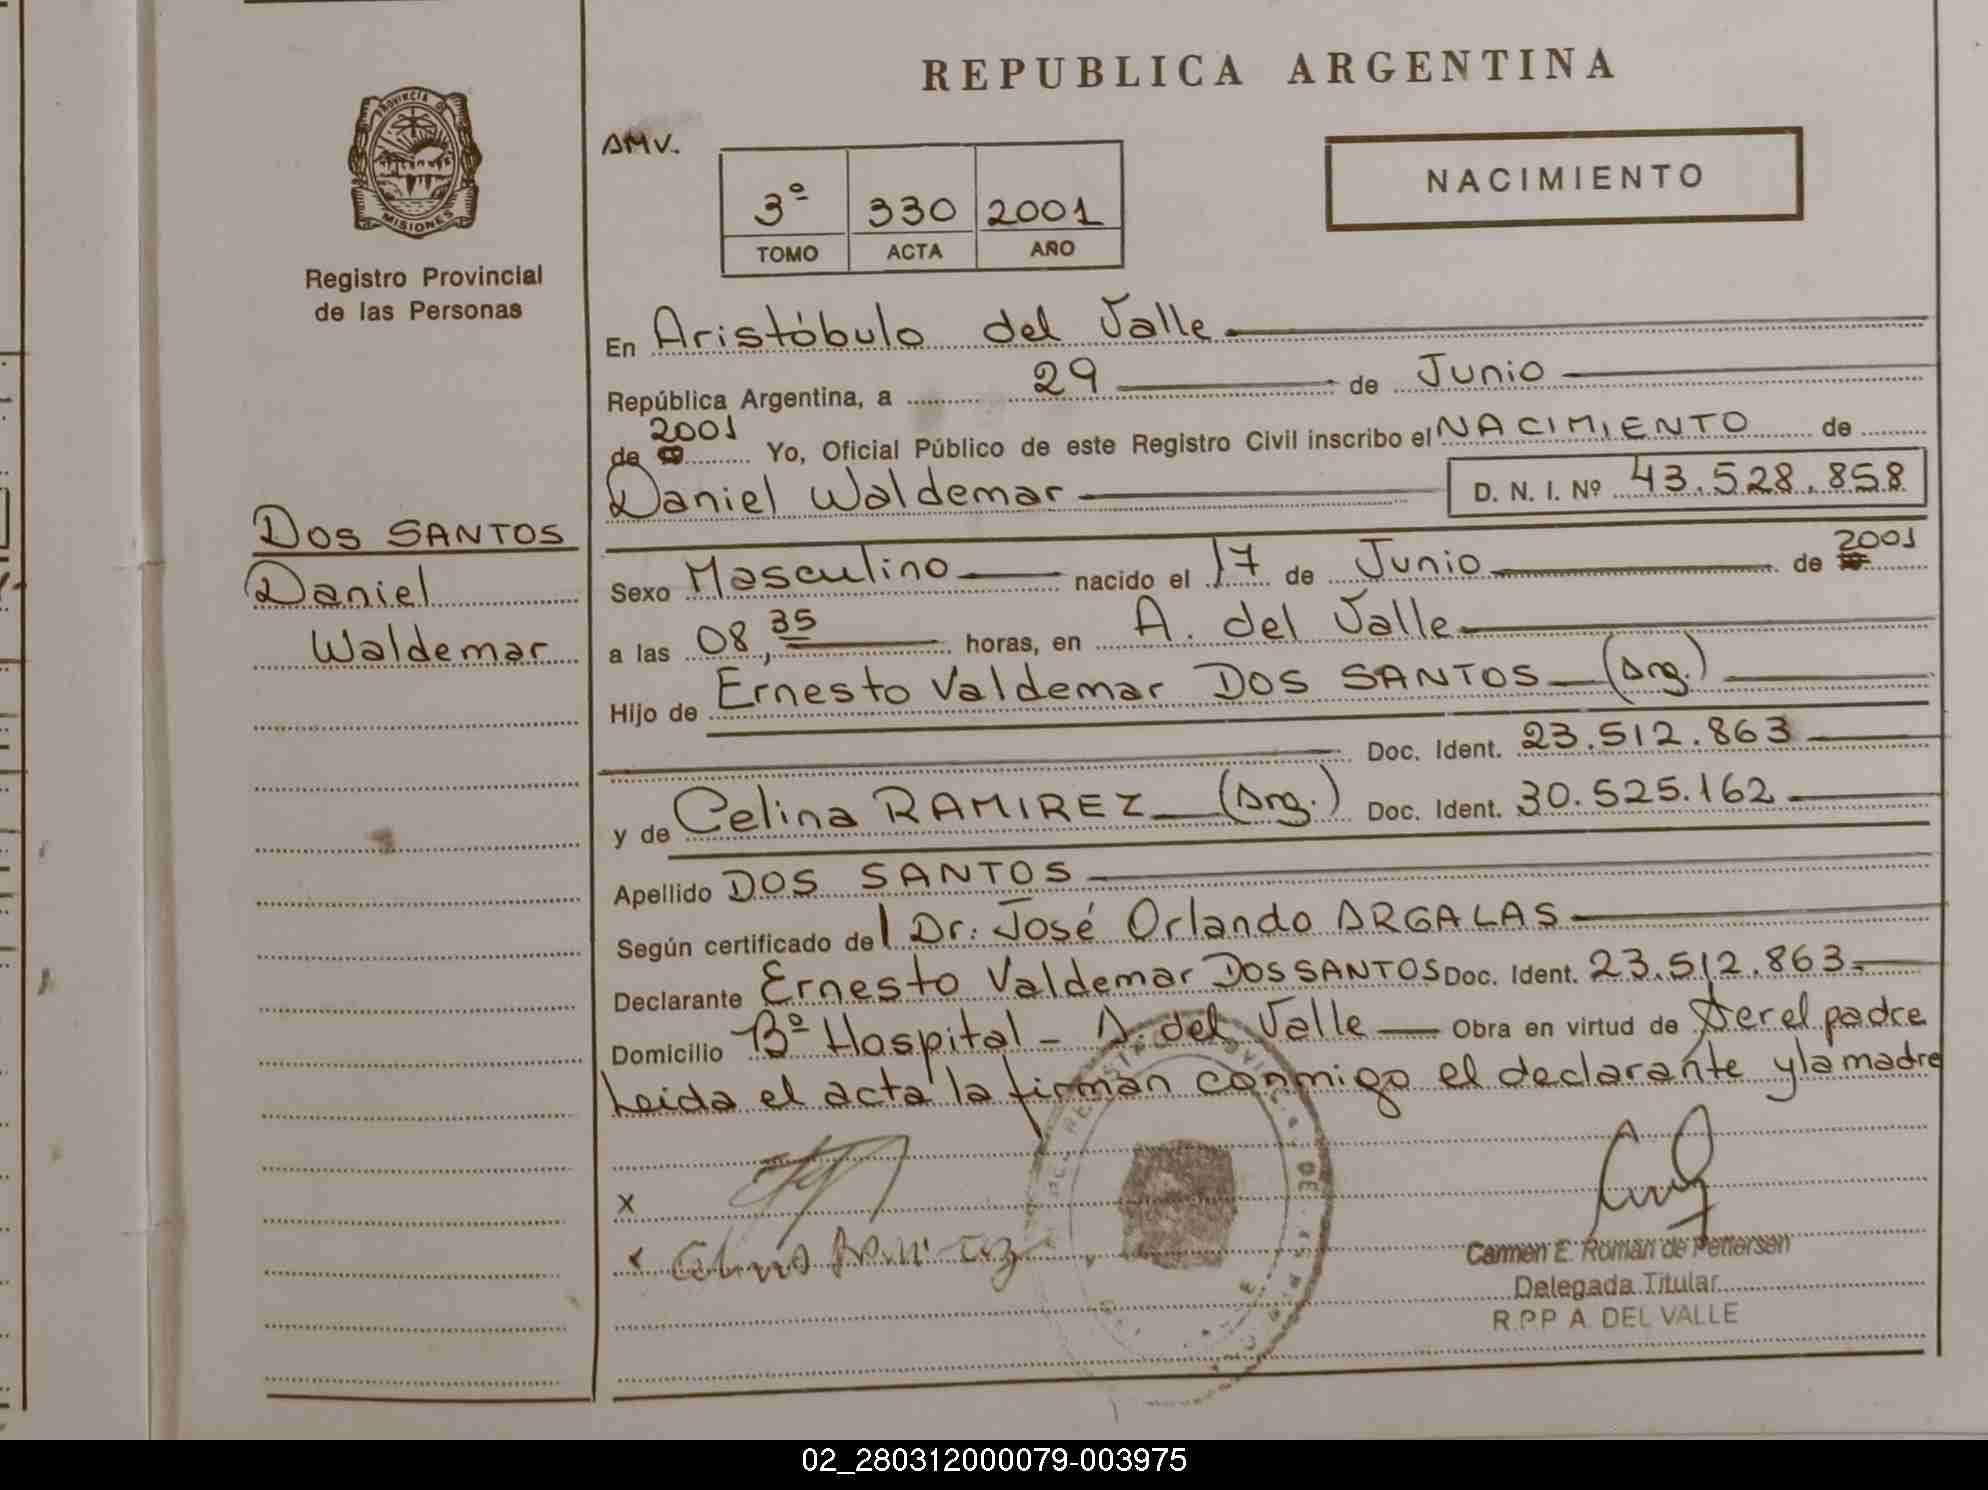 REPUBLICA ARGENTINA
PROVINCIA DE
MISIONES
Registro Provincial
de las Personas
AMV.
3º 330 2001
TOMO ACTA AÑO
NACIMIENTO
En Aristóbulo del Valle
República Argentina, a 29 de Junio
2001
de Yo, Oficial Público de este Registro Civil inscribo el NACIMIENTO de
Daniel Waldemar D. N. I. Nº 43.528.858
DOS SANTOS
Daniel
Waldemar
Sexo Masculino nacido el 17 de Junio de 2001
a las 08,35 horas, en A. del Valle
Hijo de Ernesto Valdemar DOS SANTOS (Arg.)
Doc. Ident. 23.512.863
y de Celina RAMIREZ (Arg.) Doc. Ident. 30.525.162
Apellido DOS SANTOS
Según certificado del Dr. José Orlando ARGALAS
Declarante Ernesto Valdemar DOS SANTOS Doc. Ident. 23.512.863
Domicilio Bº Hospital - A. del Valle Obra en virtud de ser el padre
Leida el acta la firman conmigo el declarante y la madre
X
Carmen E. Román de Pettersen
Delegada Titular
R.P.P A. DEL VALLE
02_280312000079-003975